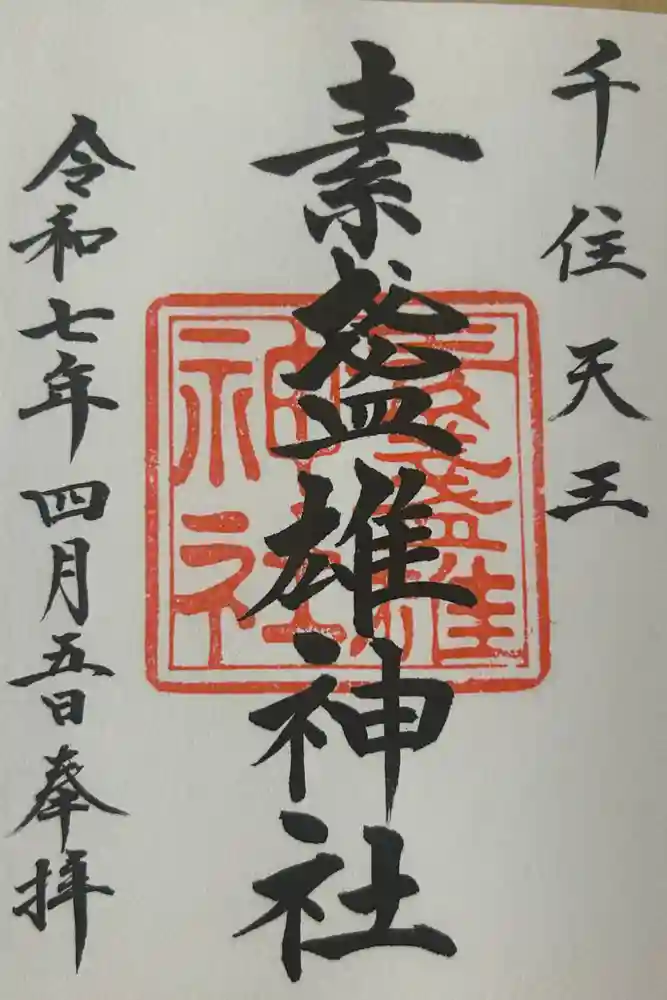 千住天王
素盞雄神社
令和七年四月五日奉拝
素盞雄神社